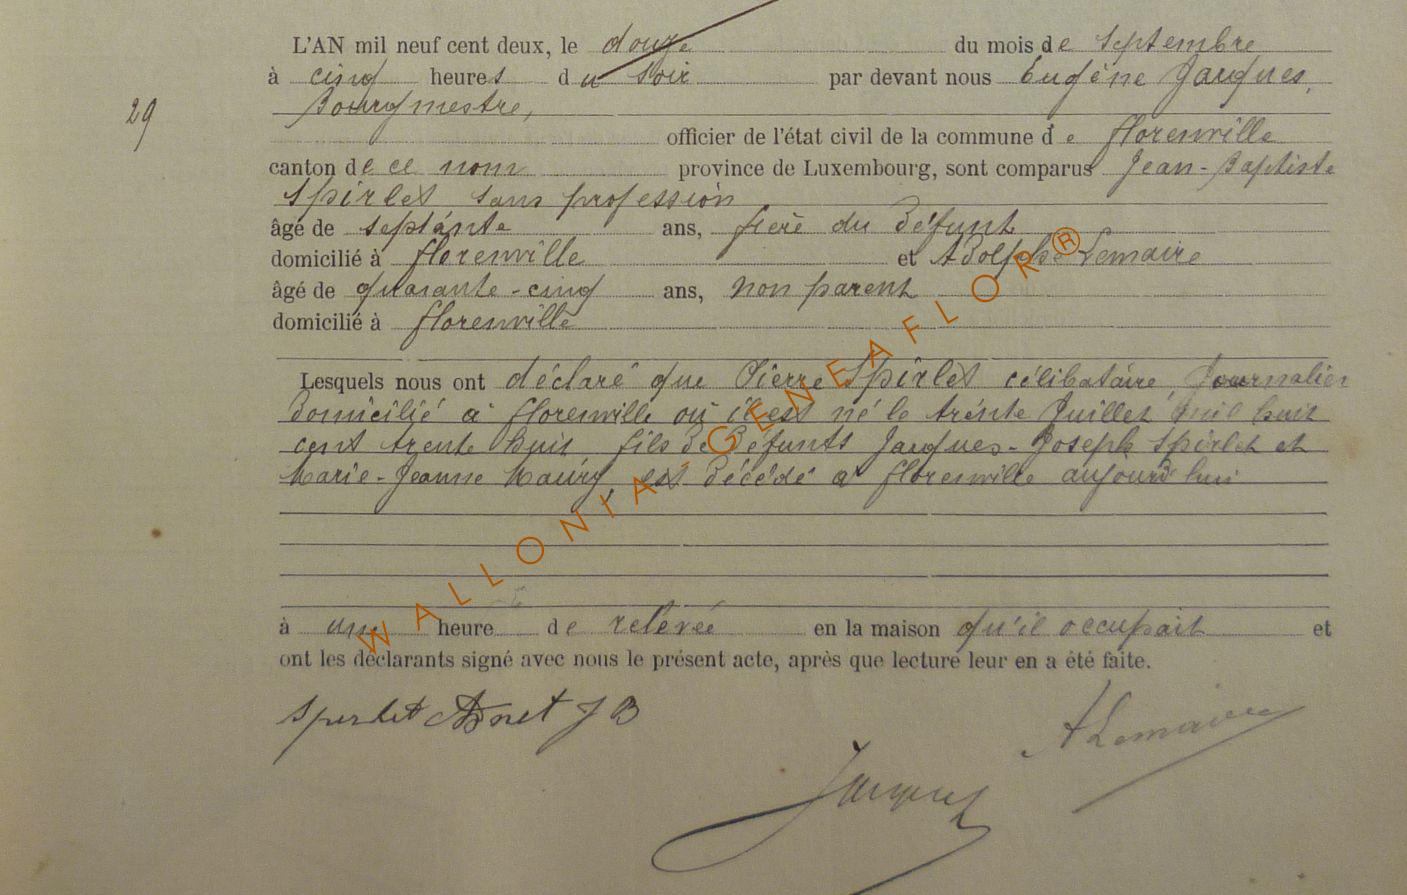 L'AN mil neuf cent deux, le douze du mois de Septembre
à cinq heures du Soir par devant nous Eugène Jacques,
Bourgmestre,
29
officier de l'état civil de la commune de florenville
canton de ce nom province de Luxembourg, sont comparus Jean-Baptiste
Spirlet sans profession
âgé de septante ans, frère du défunt
domicilié à florenville et Adolphe Lemaire
âgé de quarante-cinq ans, non parent
domicilié à florenville
Lesquels nous ont déclaré que Pierre Spirlet célibataire, Journalier
domicilié à florenville où il est né le trente Juillet mil huit
cent trente huit, fils de défunts Jacques-Joseph Spirlet et
Marie-Jeanne Maury, est décédé à florenville aujourd'hui
à une heure de relevée en la maison qu'il occupait et
ont les déclarants signé avec nous le présent acte, après que lecture leur en a été faite.
J B
A Lemaire
Jacques
WALLONIA-GENEAFLOR®